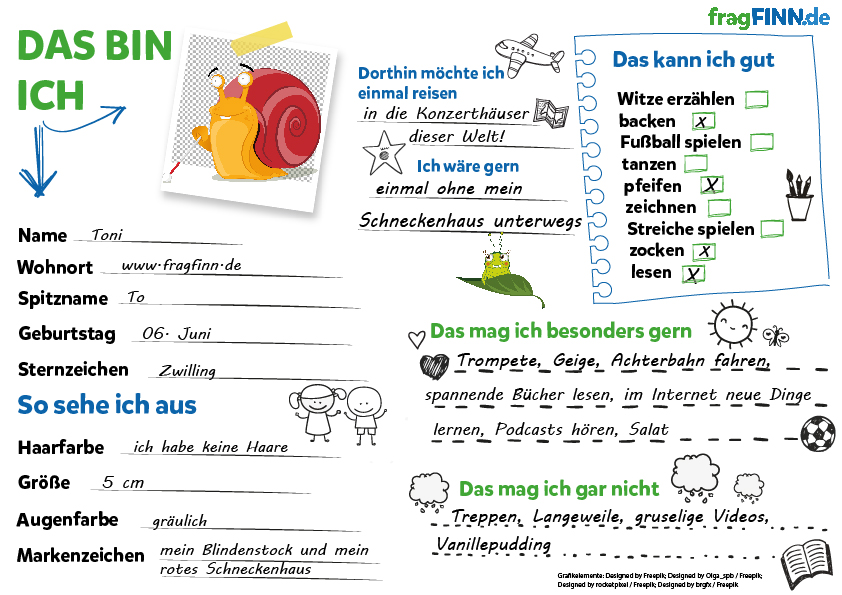 fragFINN.de
DAS BIN
ICH
Name Toni
Wohnort www.fragfinn.de
Spitzname To
Geburtstag 06. Juni
Sternzeichen Zwilling
So sehe ich aus
Haarfarbe ich habe keine Haare
Größe 5 cm
Augenfarbe gräulich
Markenzeichen mein Blindenstock und mein
rotes Schneckenhaus
Dorthin möchte ich
einmal reisen
in die Konzerthäuser
dieser Welt!
Ich wäre gern
einmal ohne mein
Schneckenhaus unterwegs
Das kann ich gut
Witze erzählen
backen x
Fußball spielen
tanzen
pfeifen x
zeichnen
Streiche spielen
zocken x
lesen x
Das mag ich besonders gern
Trompete, Geige, Achterbahn fahren,
spannende Bücher lesen, im Internet neue Dinge
lernen, Podcasts hören, Salat
Das mag ich gar nicht
Treppen, Langeweile, gruselige Videos,
Vanillepudding
Grafikelemente: Designed by Freepik; Designed by Olga_spb / Freepik;
Designed by rocketpixel / Freepik; Designed by brgfx / Freepik